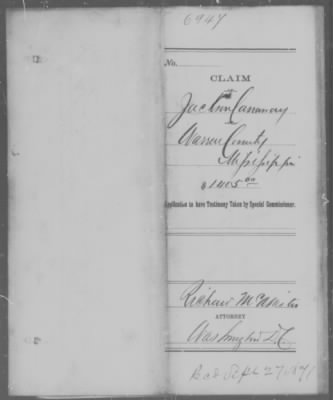 6947
No.
CLAIM
Warren County
Mississippi
$1405 00
Application to have Testimony Taken by Special Commissioner.
Richard
ATTORNEY
Washington D.C.
Rec'd Sept 27 1871